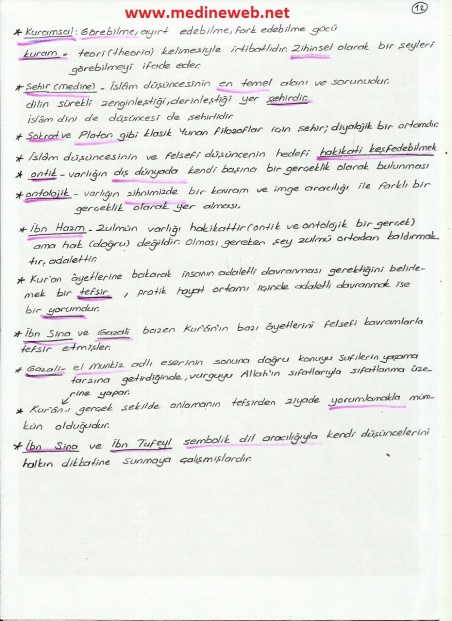 www.medineweb.net
12
* Kuramsal: Görebilme, ayırt edebilme, fark edebilme gücü
kuram = teori (theoria) kelimesiyle irtibatlıdır. Zihinsel olarak bir şeyleri
görebilmeyi ifade eder.
* Şehir (medine) - İslâm düşüncesinin en temel alanı ve sorunudur.
dilin sürekli zenginleştiği, derinleştiği yer şehirdir.
İslâm dini de düşüncesi de şehirlidir
* Sokrat ve Platon gibi klasik Yunan filozoflar için şehir; diyalojik bir ortamdır.
* İslâm düşüncesinin ve felsefi düşüncenin hedefi hakikati keşfedebilmek
* ontik - varlığın dış dünyada kendi başına bir gerçeklik olarak bulunması
* ontolojik - varlığın zihnimizde bir kavram ve imge aracılığı ile farklı bir
gerçeklik olarak yer alması.
* İbn Hazm - Zulmün varlığı hakikattir (ontik ve ontolojik bir gerçek)
ama hak (doğru) değildir. Olması gereken şey zulmü ortadan kaldırmak
tır, adalettir.
* Kur'an âyetlerine bakarak insanın adaletli davranması gerektiğini belirle-
mek bir tefsir, pratik hayat ortamı içinde adaletli davranmak ise
bir yorumdur.
* İbn Sina ve Gazali bazen Kur'ân'ın bazı âyetlerini felsefi kavramlarla
tefsir etmişler.
* Gazali - el Munkız adlı eserinin sonuna doğru konuyu sufilerin yaşama
tarzına getirdiğinde, vurguyu Allah'ın sıfatlarıyla sıfatlanma üze-
rine yapar.
* Kur'ân-ı gerçek şekilde anlamanın tefsirden ziyade yorumlamakla müm-
kün olduğudur.
* İbn Sina ve İbn Tufeyl sembolik dil aracılığıyla kendi düşüncelerini
halkın dikkatine sunmaya çalışmışlardır.